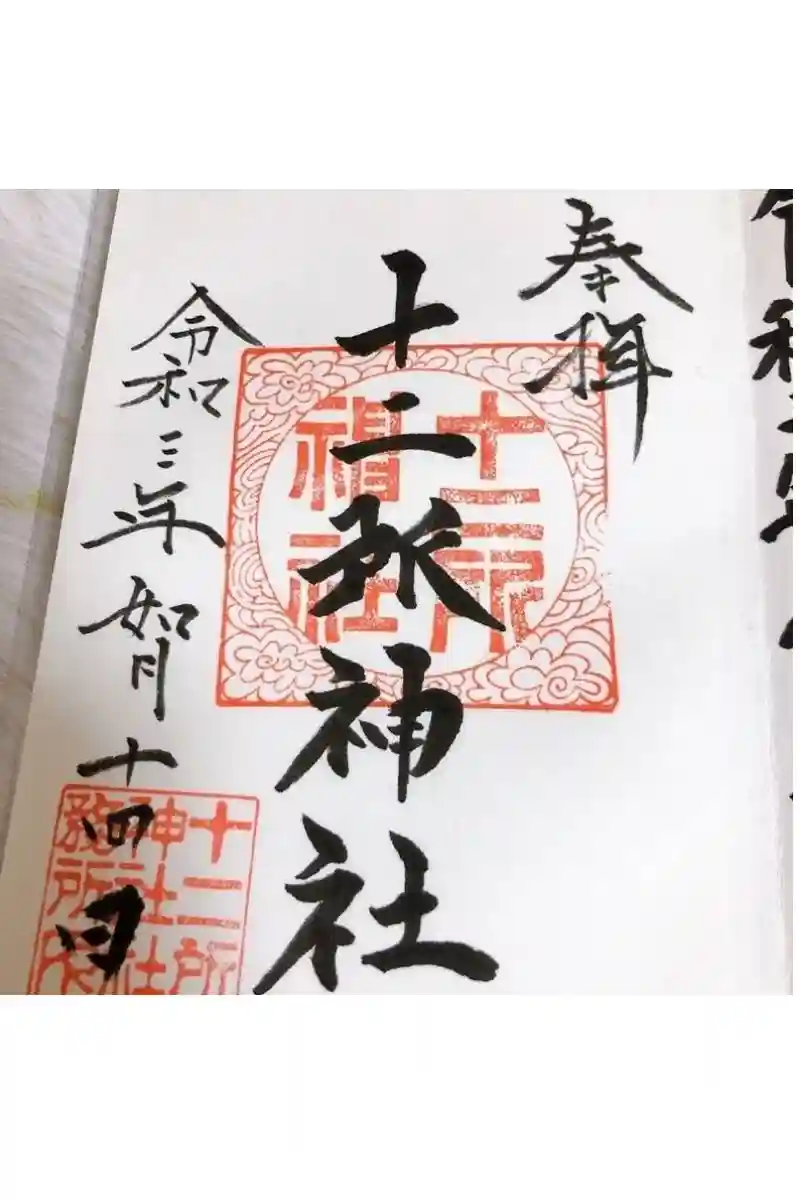 奉拝
十二所神社
十二所
神社
令和三年如月十四日
十二所
神社社
務所
令和三